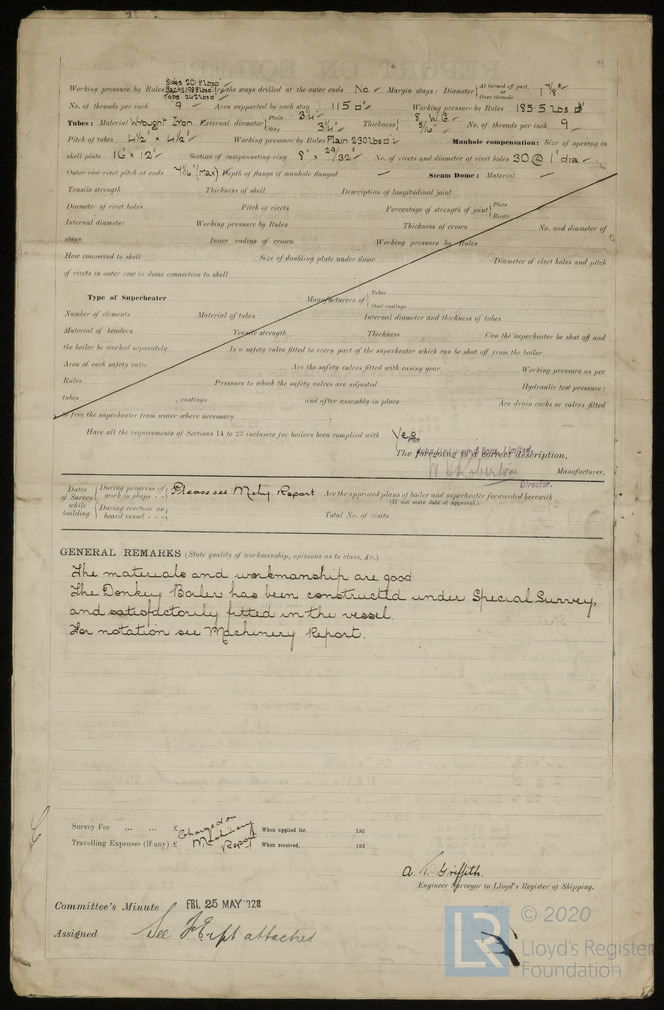 Working pressure by Rules Sides 201 lbs □" Backs 198 lbs □" Tops 242 lbs □" Are the stays drilled at the outer ends No. Margin stays: Diameter { At turned off part, or Over threads 1 7/8"
No. of threads per inch 9 Area supported by each stay 115 □" Working pressure by Rules 185.5 lbs □"
Tubes: Material Wrought Iron External diameter { Plain 3 1/4" Stay 3 1/4" Thickness { 8 W.G. 5/16" No. of threads per inch 9
Pitch of tubes 4 1/2" × 4 1/2" Working pressure by Rules Plain 230 lbs □" Manhole compensation: Size of opening in
shell plate 16" × 12" Section of compensating ring 8" × 29/32" No. of rivets and diameter of rivet holes 30 @ 1" dia
Outer row rivet pitch at ends (max) Depth of flange if manhole flanged — Steam Dome: Material —
Tensile strength Thickness of shell Description of longitudinal joint
Diameter of rivet holes Pitch of rivets Percentage of strength of joint { Plate Rivets
Internal diameter Working pressure by Rules Thickness of crown No. and diameter of
stays Inner radius of crown Working pressure by Rules
How connected to shell Size of doubling plate under dome Diameter of rivet holes and pitch
of rivets in outer row in dome connection to shell
Type of Superheater Manufacturers of { Tubes Steel castings
Number of elements Material of tubes Internal diameter and thickness of tubes
Material of headers Tensile strength Thickness Can the superheater be shut off and
the boiler be worked separately Is a safety valve fitted to every part of the superheater which can be shut off from the boiler
Area of each safety valve Are the safety valves fitted with easing gear Working pressure as per
Rules Pressure to which the safety valves are adjusted Hydraulic test pressure:
tubes , castings and after assembly in place Are drain cocks or valves fitted
to free the superheater from water where necessary
Have all the requirements of Sections 14 to 23 inclusive for boilers been complied with Yes
FOR & Sons, Limited.
The foregoing is a correct description,
Robertson Manufacturer.
Director.
Dates of Survey while building { During progress of work in shops - - } Please see Mchy. Report Are the approved plans of boiler and superheater forwarded herewith
(If not state date of approval.)
{ During erection on board vessel - - - } Total No. of visits
GENERAL REMARKS (State quality of workmanship, opinions as to class, &c.)
The materials and workmanship are good
The Donkey Boiler has been constructed under Special Survey,
and satisfactorily fitted in the vessel.
For notation see Machinery Report.
Survey Fee ... ... £ Charged on When applied for, 192
Travelling Expenses (if any) £ Machinery Report When received, 192
Griffith.
Engineer Surveyor to Lloyd's Register of Shipping.
Committee's Minute FRI. 25 MAY 1928
Assigned See attached
LR © 2020
Lloyd's Register
Foundation